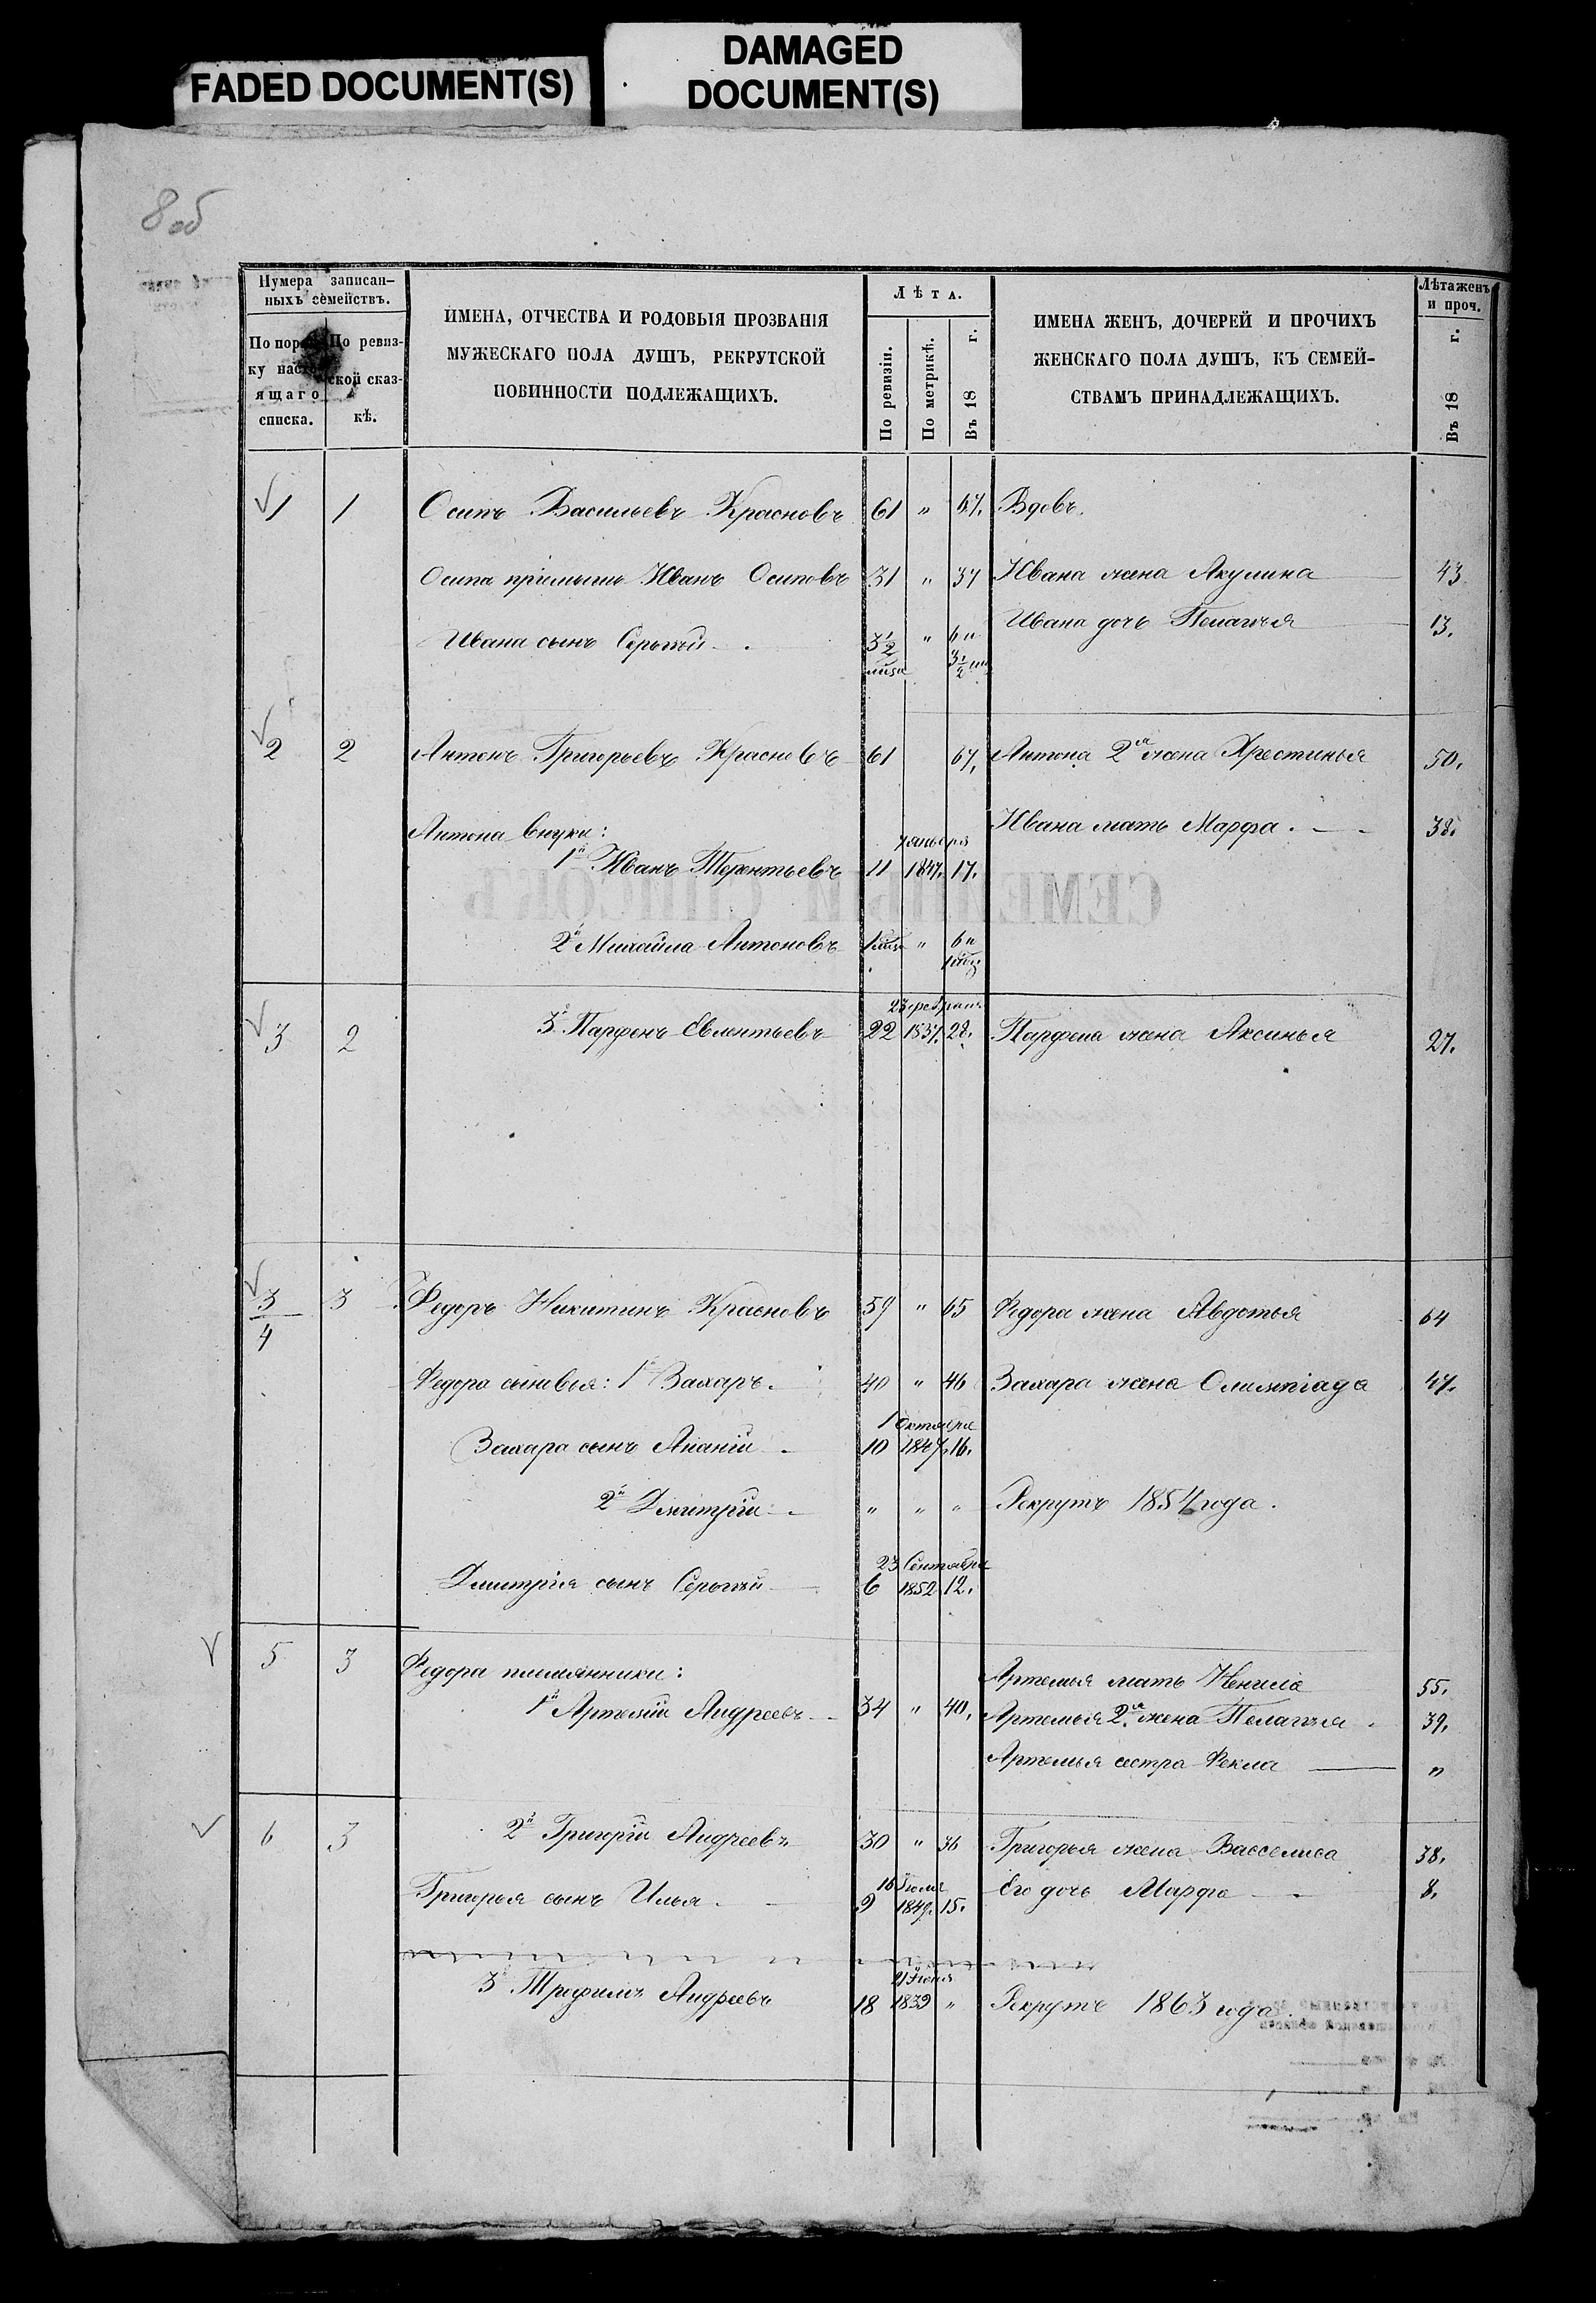 FADED DOCUMENT(S)
DAMAGED
DOCUMENT(S)
8об
Нумера записан-
ныхъ семействъ.
По ревиз-
ской сказ-
кѣ.
ящаго
списка.
ИМЕНА, ОТЧЕСТВА И РОДОВЫЯ ПРОЗВАНІЯ
МУЖЕСКАГО ПОЛА ДУШЪ, РЕКРУТСКОЙ
ПОВИННОСТИ ПОДЛЕЖАЩИХЪ.
Лѣта.
По ревизіи.
По метрикѣ.
Въ 18 г.
ИМЕНА ЖЕНЪ, ДОЧЕРЕЙ И ПРОЧИХЪ
ЖЕНСКАГО ПОЛА ДУШЪ, КЪ СЕМЕЙ-
СТВАМЪ ПРИНАДЛЕЖАЩИХЪ.
Лѣта женъ
и проч.
Въ 18 г.
1 1 Осипъ Васильевъ Красновъ 61 " 67. Вдовъ.
Осипа пріемышъ Иванъ Осиповъ 31 " 37 Ивана жена Акулина 43
Ивана сынъ Сергѣй 3½ " 6 и 3½ Ивана дочь Пелагѣя 13.
2 2 Антонъ Григорьевъ Красновъ 61 67. Антона 2я жена Хрестинья 50.
Антона внуки: Ивана мать Марфа. 38.
7 января
1й Иванъ Терентьевъ 11 1847. 17.
2й Михайла Антоновъ 1 " 6 и 1
23 февраля
3 2 3й Парфенъ Евлентьевъ 22 1837. 28. Парфена жена Аксинья 27.
3 3 Федоръ Никитинъ Красновъ 59 " 65 Федора жена Авдотья 64
4
Федора сыновья: 1й Захаръ. 40 " 46 Захара жена Олимпіада 47.
1 Октября
Захара сынъ Ананій 10 1847. 16.
2й Дмитрій " " " Рекрутъ 1854 года.
23 Сентября
Дмитрія сынъ Сергѣй 6 1852 12.
5 3 Федора племянники: Артемья мать Ненила 55.
1й Артемій Андреевъ 34 " 40. Артемья 2я жена Пелагѣя 39.
Артемья сестра Фекла "
6 3 2й Григорій Андреевъ 30 " 36 Григорья жена Васселиса 38.
16 Іюля
Григорья сынъ Илья 9 1849. 15. Его дочь Марфа 8.
21 Іюля
3й Трефилъ Андреевъ 18 1839 " Рекрутъ 1863 года.